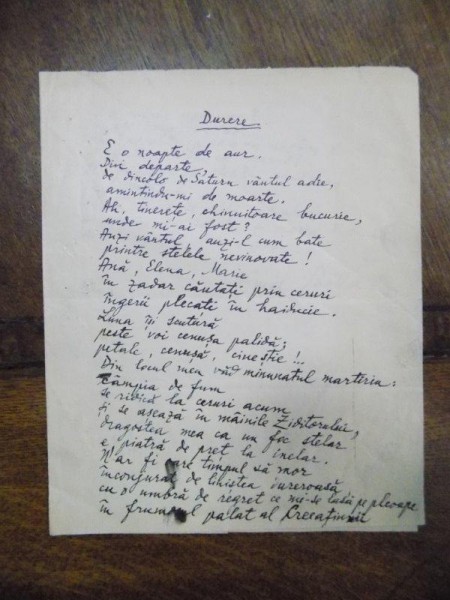 Durere
E o noapte de aur.
Divi departe,
de dincolo de Saturn vântul adie,
amintindu-mi de moarte.
Ah, tinerețe, chinuitoare bucurie,
unde mi-ai fost?
Auzi vântul, auzi-l cum bate
printre stelele nevinovate!
Ană, Elena, Marie
în zadar căutați prin ceruri
îngerii plecați în haiducie.
Luna își scutură
peste voi cenușa palidă;
petale, cenușă, cine știe!..
Din locul meu văd minunatul
câmpia de fum
se ridică la ceruri acum
și se așează în mâinile Ziditorului,
dragostea mea ca un foc stelar
e piatră de preț la inelar.
N-ar fi timpul să mor
înconjurat de liniștea
cu o umbră de regret ce mi-se lasă pe pleoape
în frumosul palat al